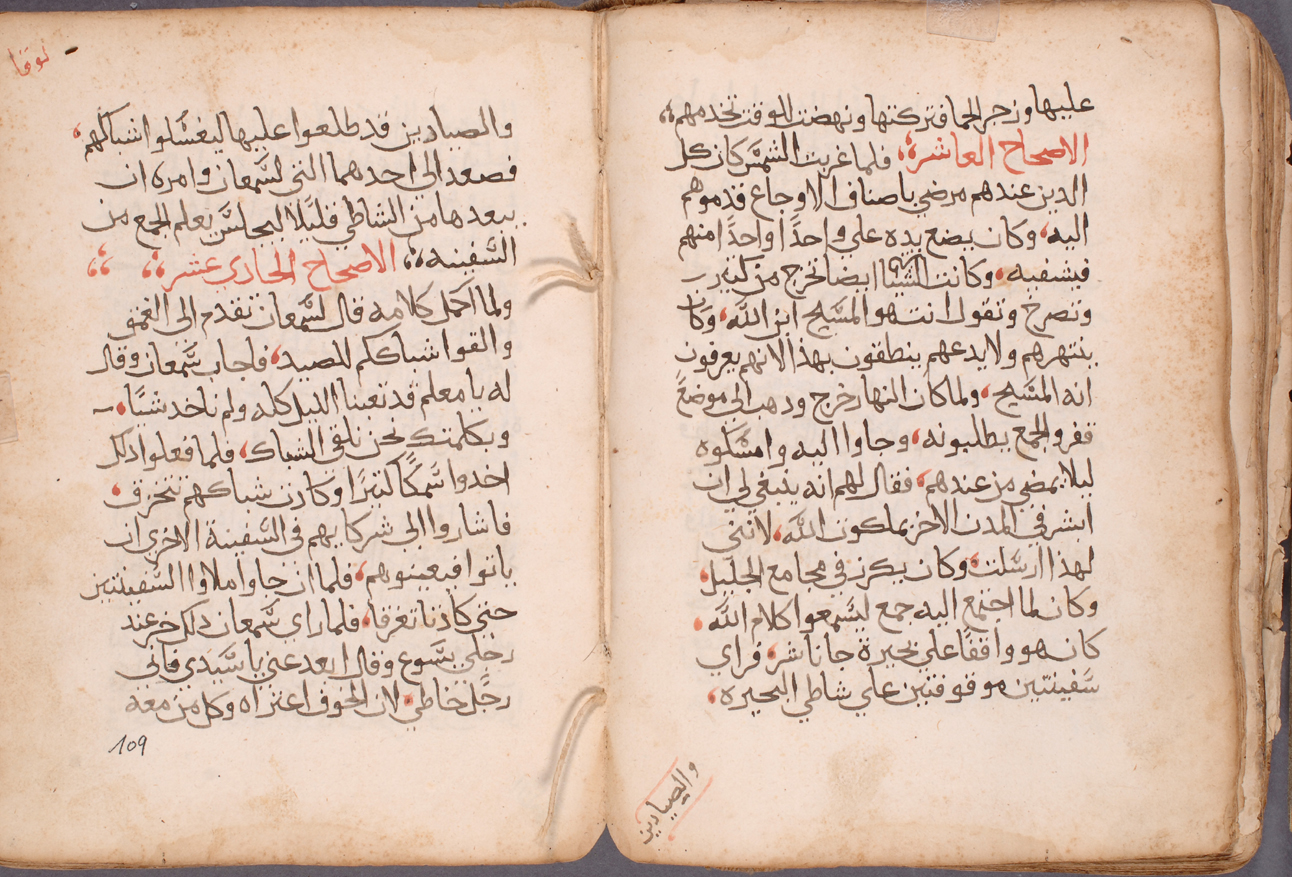 عليها وزجر الحما فتركتها ونهضت للوقت تخدمهم
الاصحاح العاشر فلما غربت الشمس كان كل
الدين عندهم مرضي باصناف الاوجاع قدموهم
اليه وكان يضع يده علي واحدًا واحدًا منهم
فيشفيه وكانت الشياا ايضا تخرج من كتير
وتصرخ وتقول انت هو المسيح ابن الله وكان
ينتهرهم ولا يدعهم ينطقون بهذا لانهم يعرفون
انه المسيح ولما كان النهار خرج ودهب الي موضع
قفر والجمع يطلبونه وجاوا اليه وامسكوه
ليلا يمضي من عندهم فقال لهم انه ينبغي لي ان
ابشر في المدن الاخر بملكوت الله لانني
لهذا ارسلت وكان يكرز في مجامع الجليل
وكان لما اجتمع اليه جمع ليسمعوا كلام الله
كان هو واقفًا علي بحيرة جاناشر فراي
سفينتين موقوفتين علي شاطي البحيره
والصيادين
لوقا
والصيادين قد طلعوا عليها ليغسلوا شباكهم
فصعد الي احدهما التي لسمعان وامره ان
يبعدها من الشاطي قليلا ليجلس يعلم الجمع من
السفينه الاصحاح الحادي عشر
ولما اكمل كلامه قال لسمعان تقدم الي الغمق
والقوا شباككم للصيد فاجاب سمعان وقال
له يا معلم قد تعبنا الليل كله ولم ناخد شيًا
وبكلمتك نحن نلقي الشباك فلما فعلوا دلك
اخدوا سمكًا كتيرًا وكادت شباكهم تتخرق
فاشاروا الي شركايهم في السفينة الاخري ان
ياتوا فيعينوهم فلما ان جاوا ملاوا السفينتين
حتي كادتا تغرقا فلما راي سمعان دلك خر عند
رجلي يسوع وقال ابعد عني يا سيدي فاني
رجل خاطي لان الخوف اعتراه وكل من معه
109